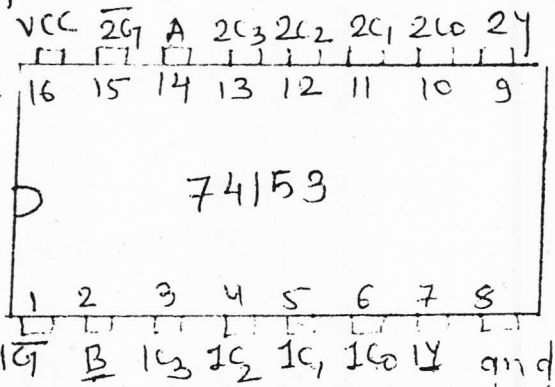 VCC 2G̅ A 2C3 2C2 2C1 2C0 2Y
16 15 14 13 12 11 10 9
74153
1 2 3 4 5 6 7 8
1G̅ B 1C3 1C2 1C1 1C0 1Y gnd